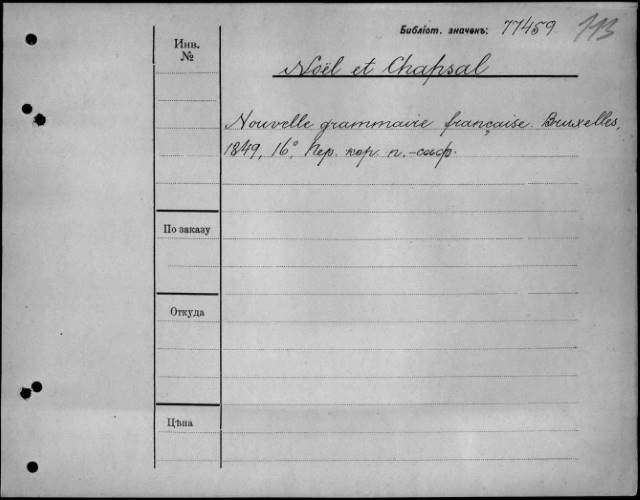 Библіот. значекъ: 77459 113
Инв.
№
Noël et Chapsal
Nouvelle grammaire française. Bruxelles,
1849, 16°. Пер. кор. п.-саф.
По заказу
Откуда
Цѣна